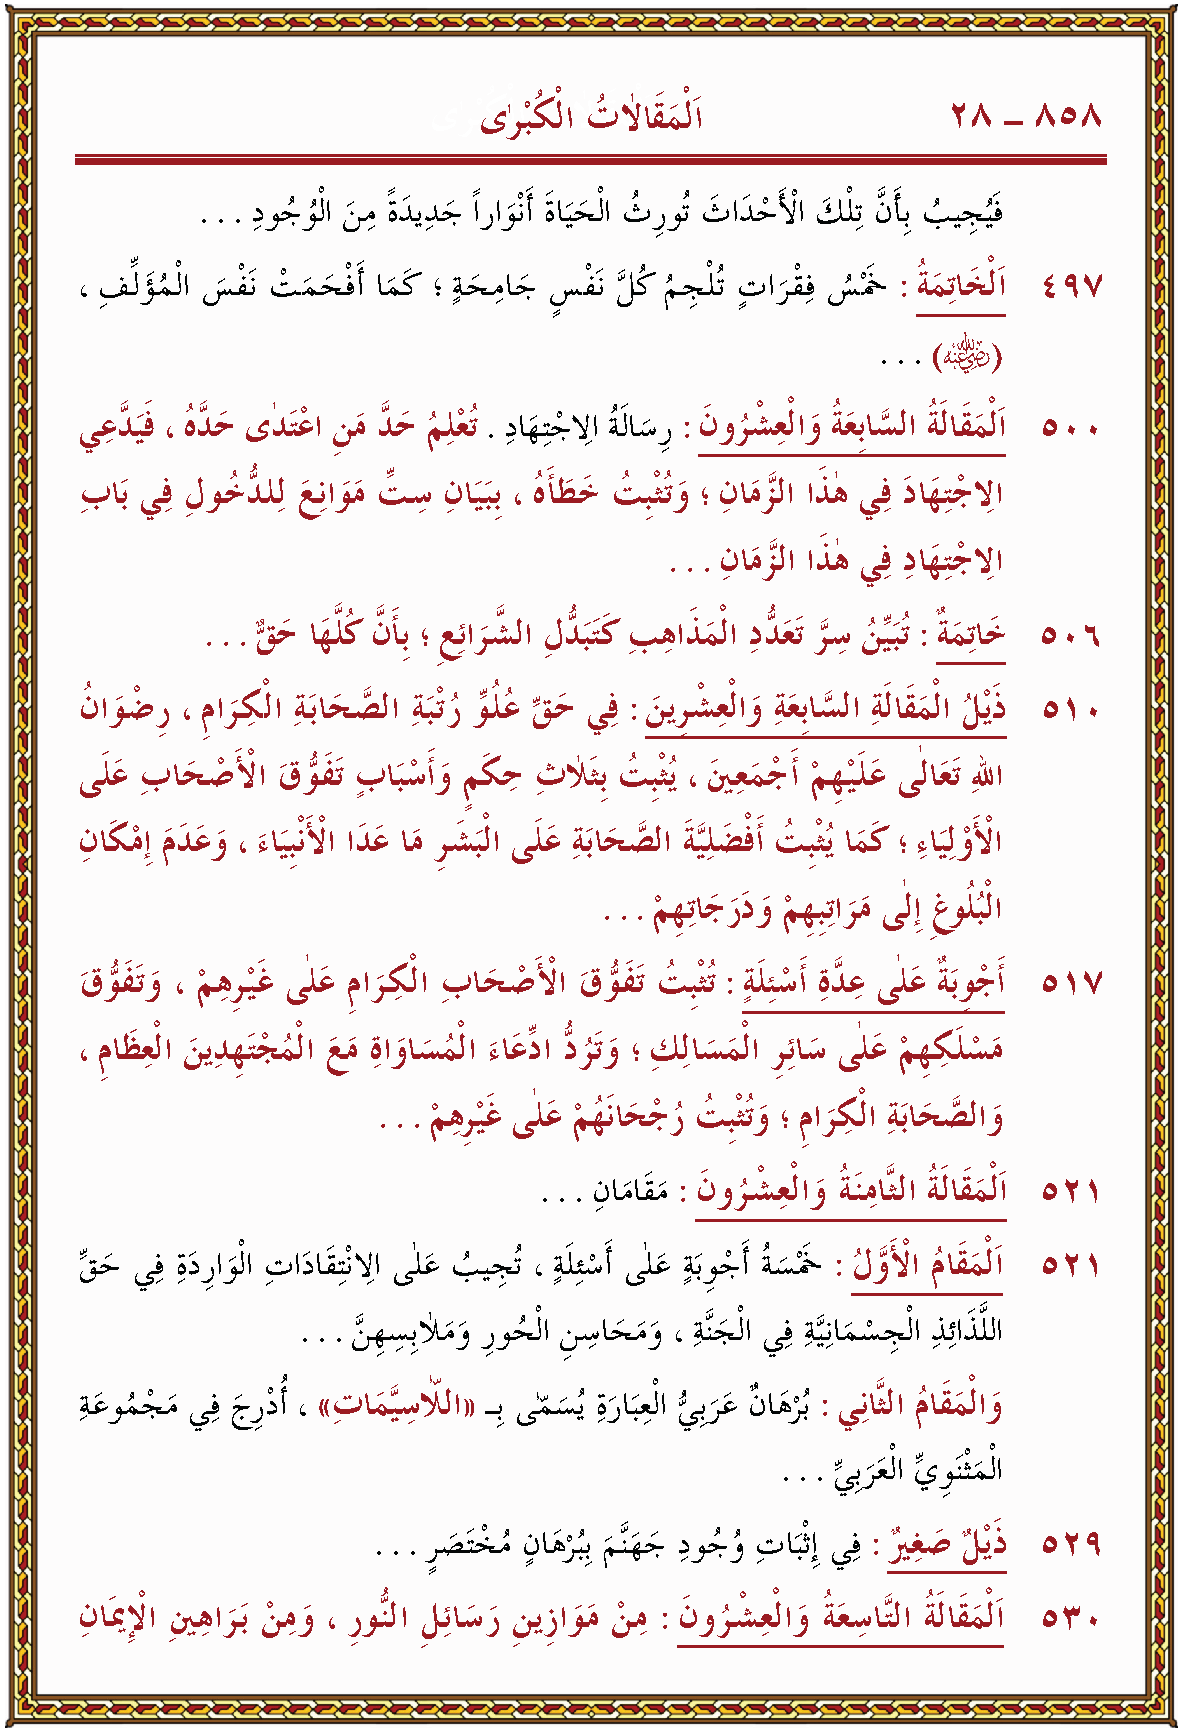 ٢٨ ــ ٨٥٨ اَلْمَقَالَاتُ الْكُبْرٰى
فَيُجِيبُ بِأَنَّ تِلْكَ الْأَحْدَاثَ تُورِثُ الْحَيَاةَ أَنْوَاراً جَدِيدَةً مِنَ الْوُجُودِ . . .
٤٩٧ اَلْخَاتِمَةُ : خَمْسُ فِقْرَاتٍ تُلْجِمُ كُلَّ نَفْسٍ جَامِحَةٍ ؛ كَمَا أَفْحَمَتْ نَفْسَ الْمُؤَلِّفِ ،
(رَضِيَ اللهُ عَنْهُ) . . .
٥٠٠ اَلْمَقَالَةُ السَّابِعَةُ وَالْعِشْرُونَ : رِسَالَةُ الِاجْتِهَادِ . تُعْلِمُ حَدَّ مَنِ اعْتَدٰى حَدَّهُ ، فَيَدَّعِي
الِاجْتِهَادَ فِي هٰذَا الزَّمَانِ ؛ وَتُثْبِتُ خَطَأَهُ ، بِبَيَانِ سِتِّ مَوَانِعَ لِلدُّخُولِ فِي بَابِ
الِاجْتِهَادِ فِي هٰذَا الزَّمَانِ . . .
٥٠٦ خَاتِمَةٌ : تُبَيِّنُ سِرَّ تَعَدُّدِ الْمَذَاهِبِ كَتَبَدُّلِ الشَّرَائِعِ ؛ بِأَنَّ كُلَّهَا حَقٌّ . . .
٥١٠ ذَيْلُ الْمَقَالَةِ السَّابِعَةِ وَالْعِشْرِينَ : فِي حَقِّ عُلُوِّ رُتْبَةِ الصَّحَابَةِ الْكِرَامِ ، رِضْوَانُ
اللهِ تَعَالٰى عَلَيْهِمْ أَجْمَعِينَ ، يُثْبِتُ بِثَلَاثِ حِكَمٍ وَأَسْبَابٍ تَفَوُّقَ الْأَصْحَابِ عَلَى
الْأَوْلِيَاءِ ؛ كَمَا يُثْبِتُ أَفْضَلِيَّةَ الصَّحَابَةِ عَلَى الْبَشَرِ مَا عَدَا الْأَنْبِيَاءَ ، وَعَدَمَ إِمْكَانِ
الْبُلُوغِ إِلٰى مَرَاتِبِهِمْ وَدَرَجَاتِهِمْ . . .
٥١٧ أَجْوِبَةٌ عَلٰى عِدَّةِ أَسْئِلَةٍ : تُثْبِتُ تَفَوُّقَ الْأَصْحَابِ الْكِرَامِ عَلٰى غَيْرِهِمْ ، وَتَفَوُّقَ
مَسْلَكِهِمْ عَلٰى سَائِرِ الْمَسَالِكِ ؛ وَتَرُدُّ ادِّعَاءَ الْمُسَاوَاةِ مَعَ الْمُجْتَهِدِينَ الْعِظَامِ ،
وَالصَّحَابَةِ الْكِرَامِ ؛ وَتُثْبِتُ رُجْحَانَهُمْ عَلٰى غَيْرِهِمْ . . .
٥٢١ اَلْمَقَالَةُ الثَّامِنَةُ وَالْعِشْرُونَ : مَقَامَانِ . . .
٥٢١ اَلْمَقَامُ الْأَوَّلُ : خَمْسَةُ أَجْوِبَةٍ عَلٰى أَسْئِلَةٍ ، تُجِيبُ عَلٰى الِانْتِقَادَاتِ الْوَارِدَةِ فِي حَقِّ
اللَّذَائِذِ الْجِسْمَانِيَّةِ فِي الْجَنَّةِ ، وَمَحَاسِنِ الْحُورِ وَمَلَابِسِهِنَّ . . .
وَالْمَقَامُ الثَّانِي : بُرْهَانٌ عَرَبِيُّ الْعِبَارَةِ يُسَمّٰى بِـ «اللَّاسِيَّمَاتِ» ، أُدْرِجَ فِي مَجْمُوعَةِ
الْمَثْنَوِيِّ الْعَرَبِيِّ . . .
٥٢٩ ذَيْلٌ صَغِيرٌ : فِي إِثْبَاتِ وُجُودِ جَهَنَّمَ بِبُرْهَانٍ مُخْتَصَرٍ . . .
٥٣٠ اَلْمَقَالَةُ التَّاسِعَةُ وَالْعِشْرُونَ : مِنْ مَوَازِينِ رَسَائِلِ النُّورِ ، وَمِنْ بَرَاهِينِ الْإِيمَانِ